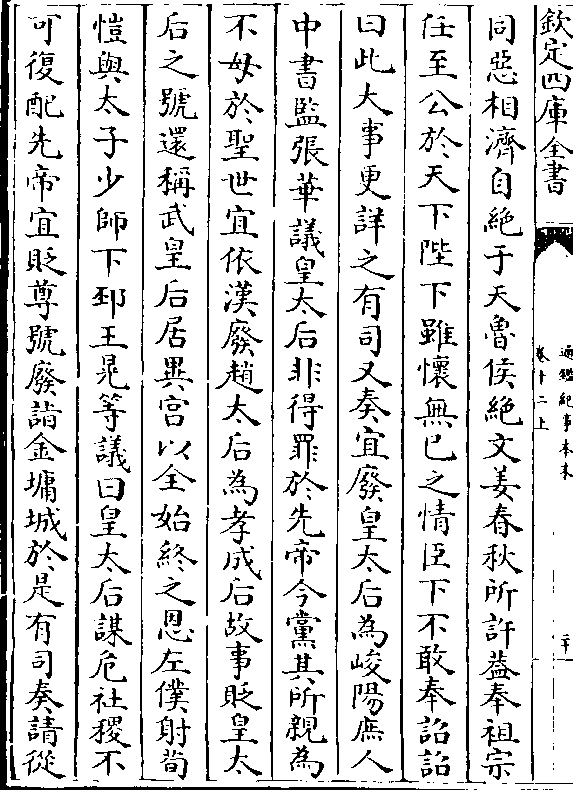 欽定四庫全書
通鑑紀事本末
卷十二上
二十
同惡相濟自絶于天魯侯絶文姜春秋所許葢奉祖宗
任至公於天下陛下雖懷無已之情臣下不敢奉詔詔
曰此大事更詳之有司又奏宜廢皇太后為峻陽庶人
中書監張華議皇太后非得罪於先帝今黨其所親為
不母於聖世宜依漢廢趙太后為孝成后故事貶皇太
后之號還稱武皇后居異宫以全始終之恩左僕射荀
愷與太子少師下邳王晃等議曰皇太后謀危社稷不
可復配先帝宜貶尊號廢詣金墉城於是有司奏請從